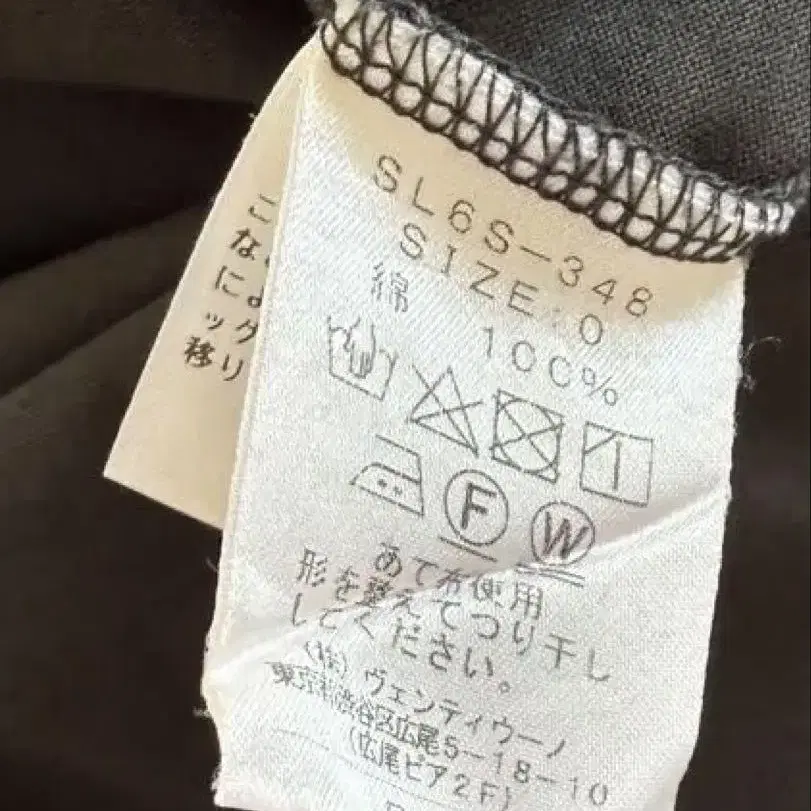 SL6S-348
SIZE:0
綿 100%
F W
あて布使用
形を整えてつり干し
してください。
(株)ヴェンティウーノ
東京都渋谷区広尾5-18-10
(広尾ピア2F)
こ
な
によ
ック
移り